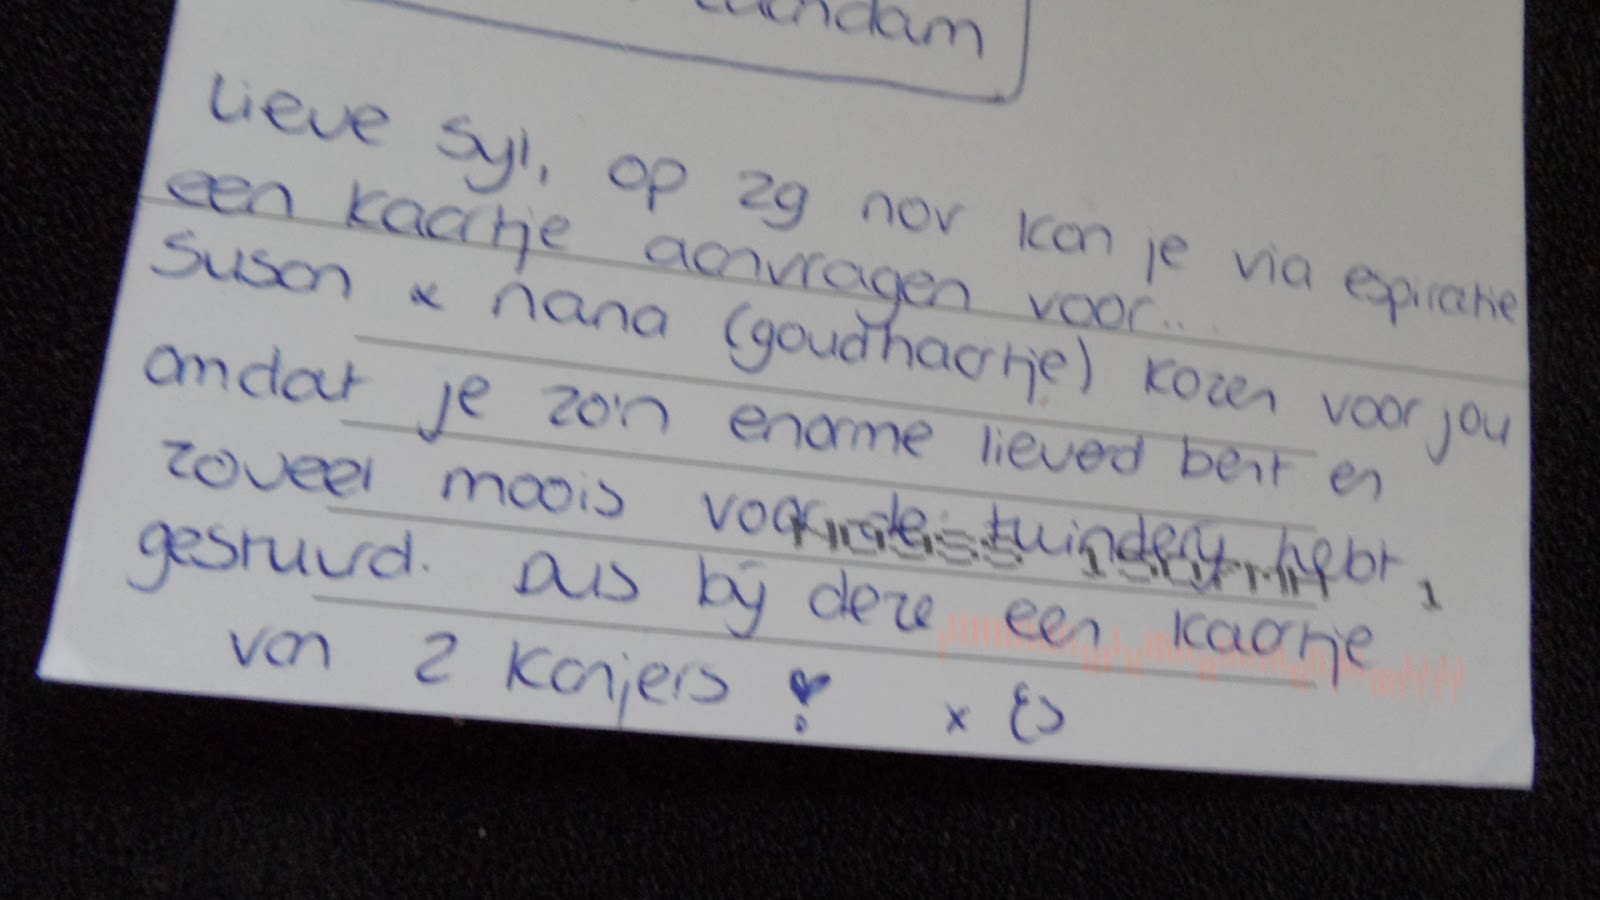 Lieve Syl, op 29 nov kan je via espiratie
een kaartje aanvragen voor...
Suson & nana (goudhaartje) kozen voor jou
omdat je zo'n enorme lieverd bent en
zoveel moois voor de tuindery hebt
gestuurd. Dus bij deze een kaartje
van 2 kanjers!
x Es